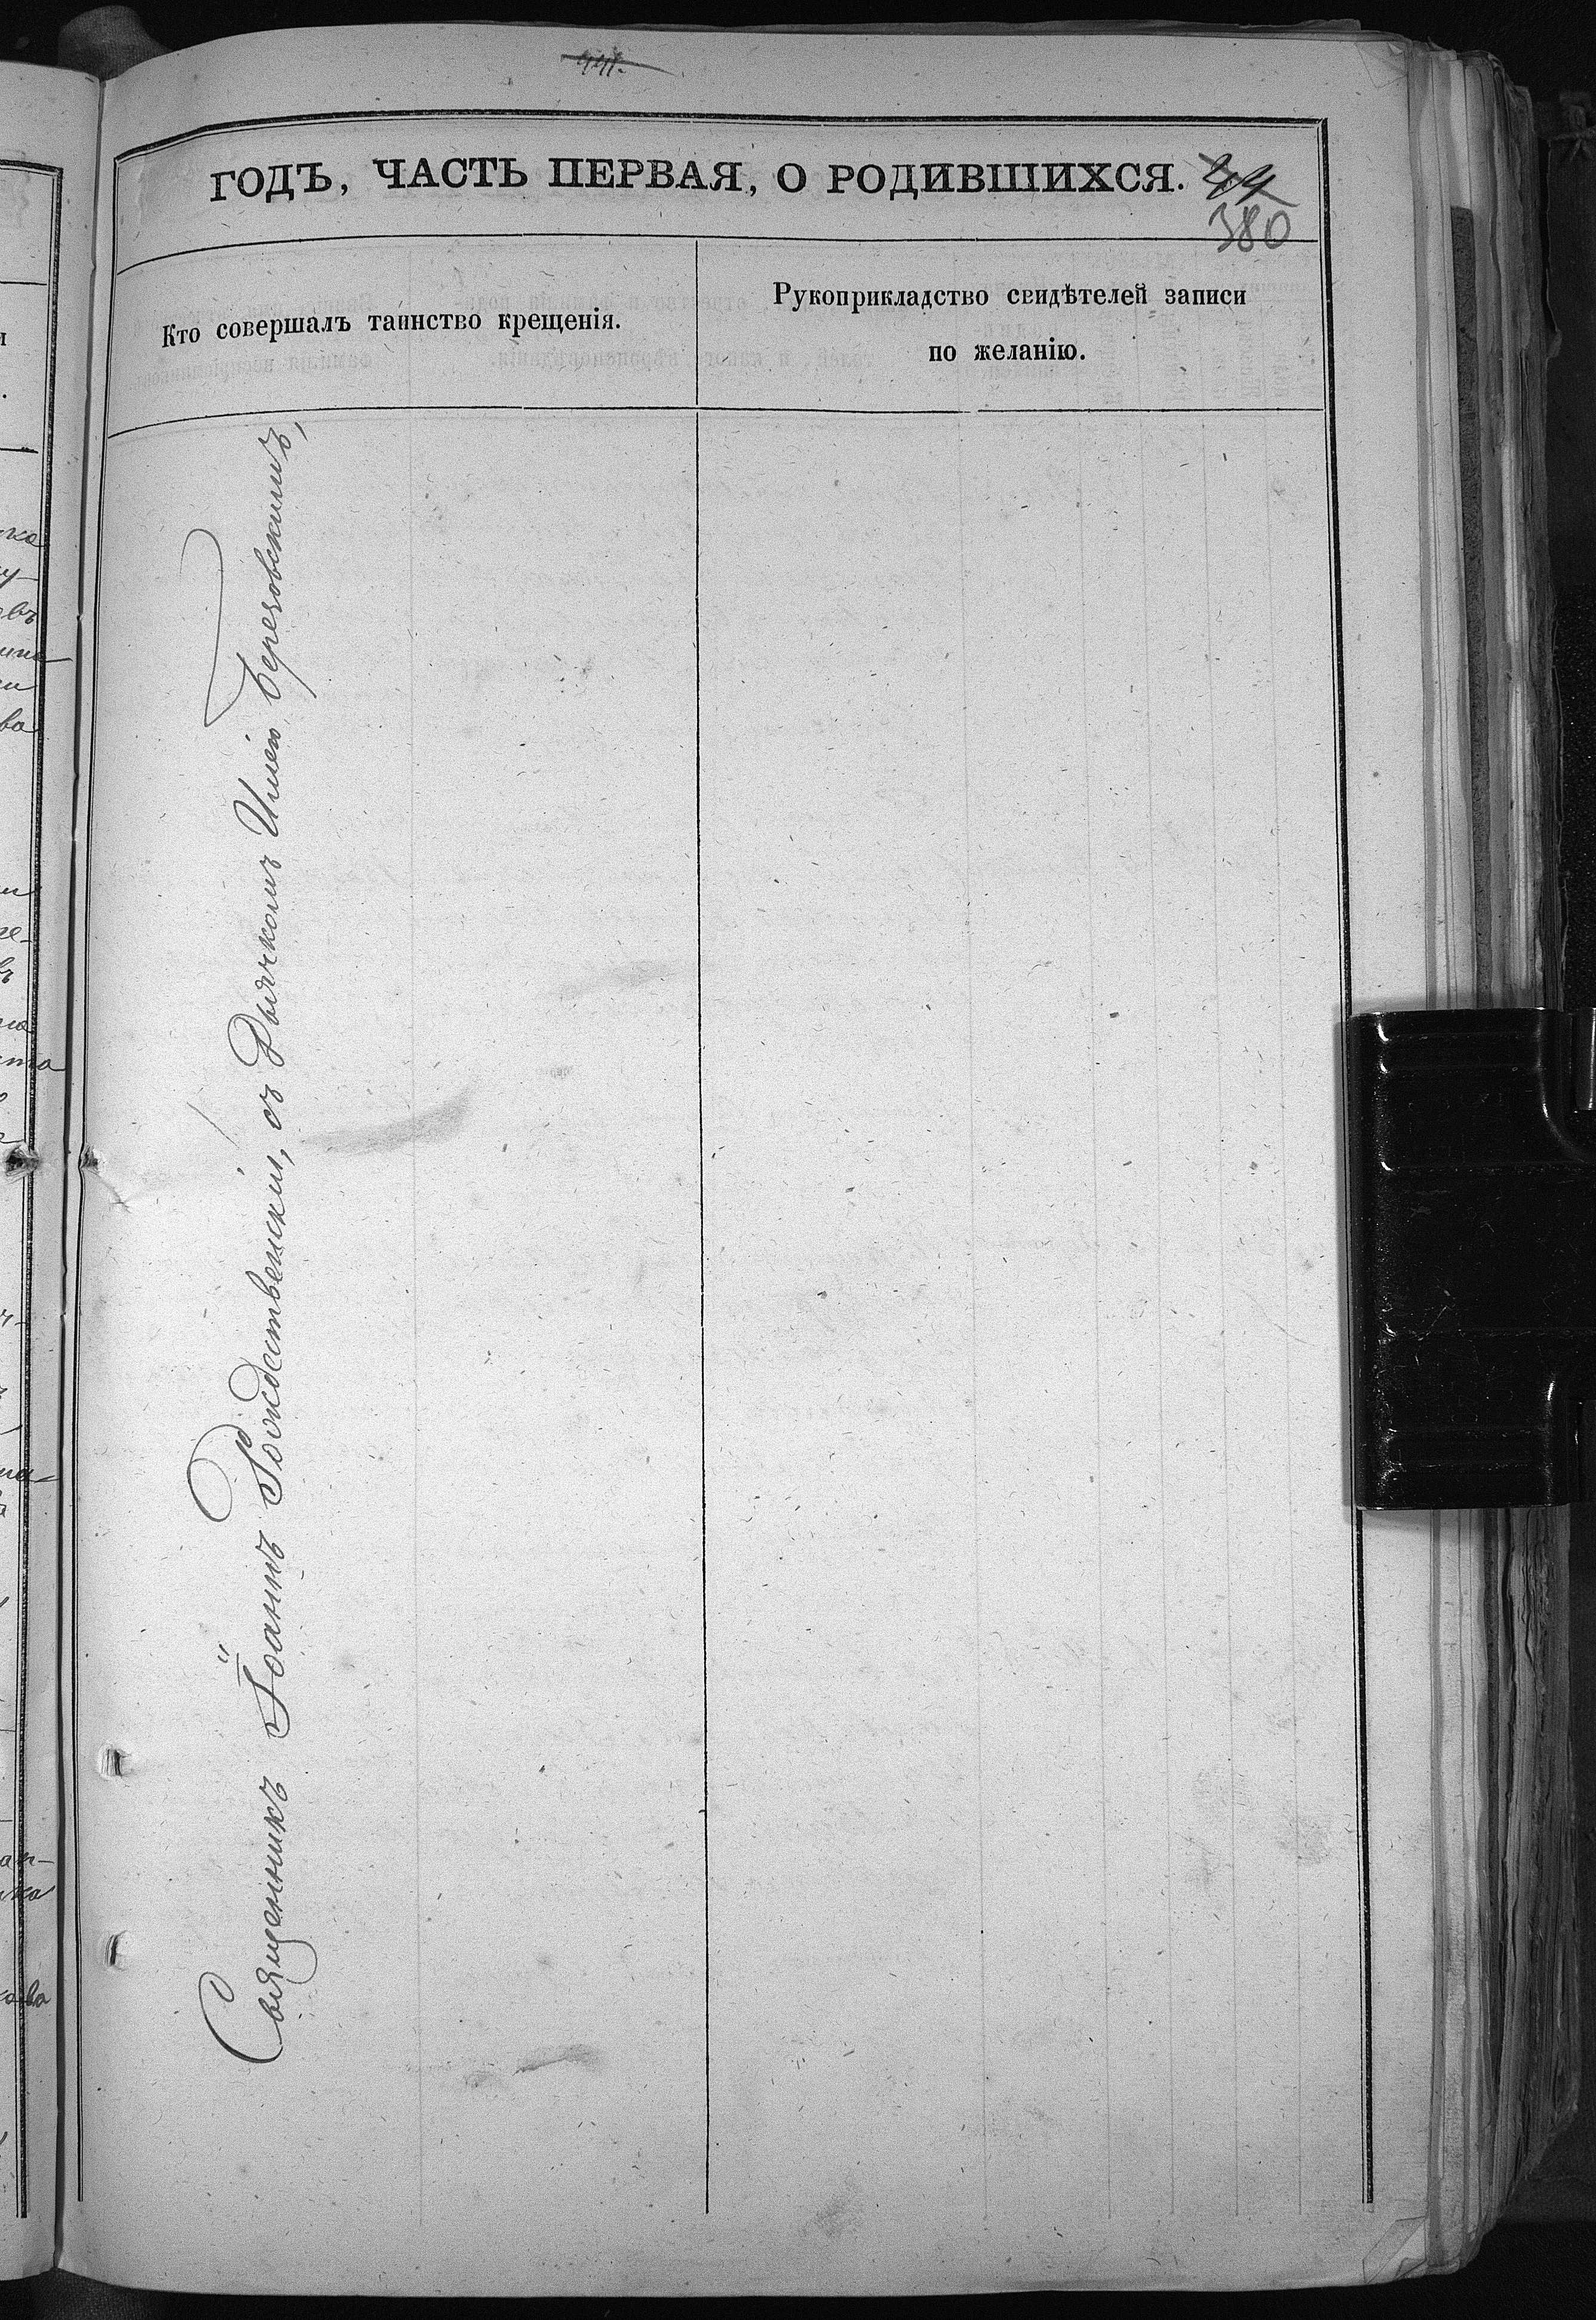 441.
ГОДЪ, ЧАСТЬ ПЕРВАЯ, О РОДИВШИХСЯ.
380
Кто совершалъ таинство крещенія.
Рукоприкладство свидѣтелей записи
по желанію.
Священникъ Іоаннъ Рождественскій, съ Дьячкомъ Ильею Березовскимъ,